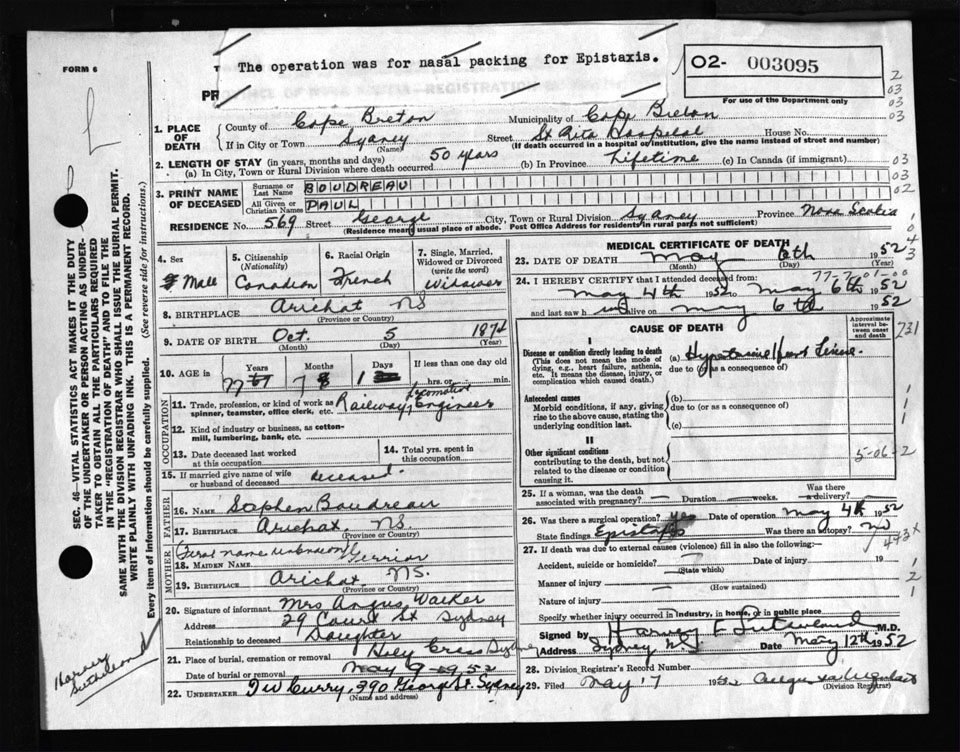 FORM 6
The operation was for nasal packing for Epistaxis.
PR
O2- 003095
For use of the Department only
2
03
03
03
1. PLACE OF DEATH
County of Cape Breton Municipality of Cape Breton
If in City or Town Sydney (Name) Street St Rita Hospital House No.
(If death occurred in a hospital or institution, give the name instead of street and number)
2. LENGTH OF STAY (in years, months and days)
(a) In City, Town or Rural Division where death occurred 50 years (b) In Province Lifetime (c) In Canada (if immigrant) 03
3. PRINT NAME OF DECEASED
Surname or Last Name BOUDREAU 03
All Given or Christian Names PAUL 02
RESIDENCE No. 569 Street George City, Town or Rural Division Sydney Province Nova Scotia
(Residence means usual place of abode. Post Office Address for residents in rural parts not sufficient)
4. Sex Male
5. Citizenship (Nationality) Canadian
6. Racial Origin French
7. Single, Married, Widowed or Divorced (write the word) Widower
8. BIRTHPLACE Arichat NS
(Province or Country)
9. DATE OF BIRTH Oct. 5 1874
(Month) (Day) (Year)
10. AGE in Years 77 Months 7 Days 1 If less than one day old hrs. or min.
OCCUPATION
11. Trade, profession, or kind of work as spinner, teamster, office clerk, etc. Railway Locomotive Engineer
12. Kind of industry or business, as cotton-mill, lumbering, bank, etc.
13. Date deceased last worked at this occupation
14. Total yrs. spent in this occupation
15. If married give name of wife or husband of deceased deceased.
FATHER
16. Name Stephen Boudreau
17. Birthplace Arichat, NS.
MOTHER
(First name unknown)
18. MAIDEN NAME Terrior
19. BIRTHPLACE Arichat NS.
20. Signature of informant Mrs Angus Walker
Address 29 Court St Sydney
Relationship to deceased Daughter
21. Place of burial, cremation or removal Holy Cross Sydney
Date of burial or removal May 9 1952
22. UNDERTAKER T W Curry, 390 George St. Sydney
(Name and address)
MEDICAL CERTIFICATE OF DEATH
23. DATE OF DEATH May 6th 1952
(Month) (Day) (Year)
24. I HEREBY CERTIFY that I attended deceased from:
May 4th 1952 to May 6th 1952
and last saw him alive on May 6th 1952
CAUSE OF DEATH
Approximate interval between onset and death
731
I
Disease or condition directly leading to death (a) Hypertensive Heart Disease.
(This does not mean the mode of dying, e.g., heart failure, asthenia, etc. It means the disease, injury, or complication which caused death.)
due to (or as a consequence of)
Antecedent causes
Morbid conditions, if any, giving rise to the above cause, stating the underlying condition last.
(b)
due to (or as a consequence of)
(c)
II
Other significant conditions
contributing to the death, but not related to the disease or condition causing it.
5-06-2
25. If a woman, was the death associated with pregnancy? Duration weeks. Was there a delivery?
26. Was there a surgical operation? yes Date of operation May 4th 1952
State findings Epistaxis Was there an autopsy? no
443x
27. If death was due to external causes (violence) fill in also the following:-
Accident, suicide or homicide? (State which) Date of injury 19
Manner of injury (How sustained)
Nature of injury
Specify whether injury occurred in industry, in home, or in public place
Signed by Harvey F Sutherland M.D.
Address Sydney N.S. Date May 12th 1952
28. Division Registrar's Record Number
29. Filed May 17 1952
(Division Registrar)
SEC. 46—VITAL STATISTICS ACT MAKES IT THE DUTY
OF THE UNDERTAKER OR PERSON ACTING AS UNDER-
TAKER TO OBTAIN ALL THE PARTICULARS REQUIRED
IN THE "REGISTRATION OF DEATH" AND TO FILE THE
SAME WITH THE DIVISION REGISTRAR WHO SHALL ISSUE THE BURIAL PERMIT.
WRITE PLAINLY WITH UNFADING INK. THIS IS A PERMANENT RECORD.
Every item of information should be carefully supplied. (See reverse side for instructions.)
Harvey
Sutherland